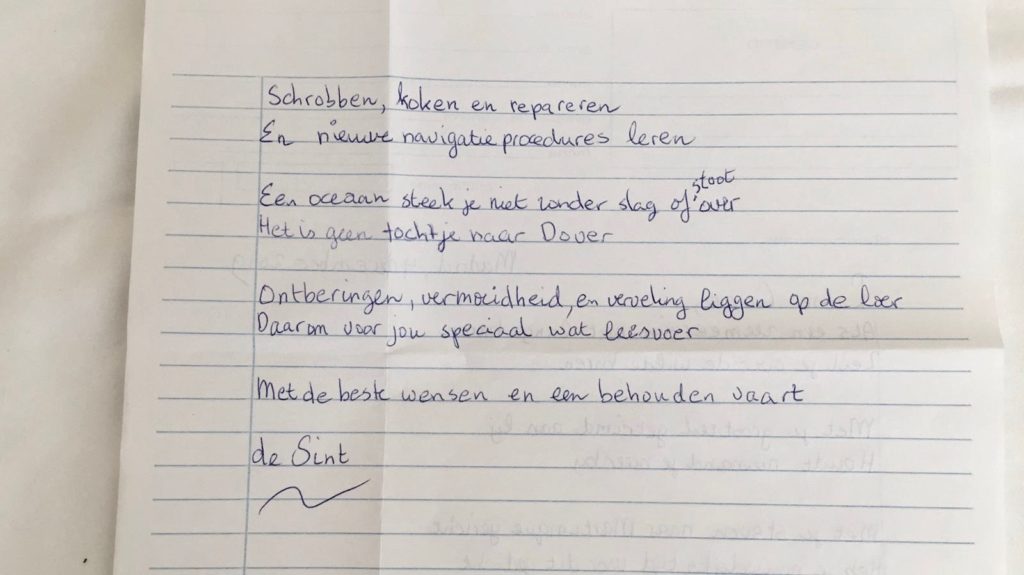 Schrobben, koken en repareren
En nieuwe navigatie procedures leren
Een oceaan steek je niet zonder slag of stoot over
Het is geen tochtje naar Dover
Ontberingen, vermoeidheid, en verveling liggen op de loer
Daarom voor jou speciaal wat leesvoer
Met de beste wensen en een behouden vaart
de Sint